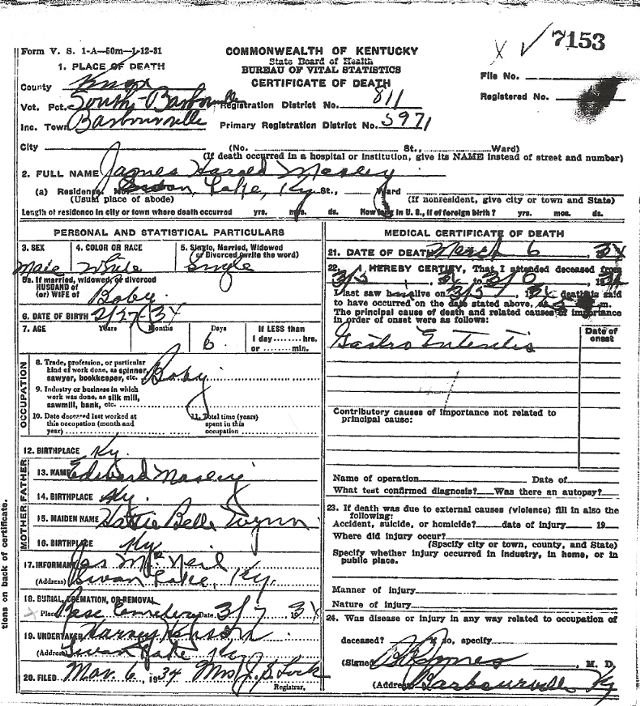 7153
Form V. S. 1-A—50m—1-12-31
COMMONWEALTH OF KENTUCKY
State Board of Health
BUREAU OF VITAL STATISTICS
CERTIFICATE OF DEATH
File No.
Registered No.
1. PLACE OF DEATH
County Knox
Vot. Pct. South Barbourville Registration District No. 811
Inc. Town Barbourville Primary Registration District No. 5971
City (No. St., Ward)
(If death occurred in a hospital or institution, give its NAME instead of street and number)
2. FULL NAME James Harold Mosley
(a) Residence. No. Swan Lake, Ky. St., Ward
(Usual place of abode) (If nonresident, give city or town and State)
Length of residence in city or town where death occurred yrs. mos. ds. How long in U. S., if of foreign birth? yrs. mos. ds.
PERSONAL AND STATISTICAL PARTICULARS
3. SEX 4. COLOR OR RACE 5. Single, Married, Widowed or Divorced (write the word)
Male White Single
5a. If married, widowed, or divorced
HUSBAND of
(or) WIFE of Baby
6. DATE OF BIRTH 2/27/34
7. AGE Years Months Days If LESS than
6 1 day hrs.
or min.
OCCUPATION
8. Trade, profession, or particular kind of work done, as spinner, sawyer, bookkeeper, etc. Baby
9. Industry or business in which work was done, as silk mill, sawmill, bank, etc.
10. Date deceased last worked at this occupation (month and year)
11. Total time (years) spent in this occupation
12. BIRTHPLACE Ky.
FATHER
13. NAME Edward Mosley
14. BIRTHPLACE Ky.
MOTHER
15. MAIDEN NAME Hattie Belle
16. BIRTHPLACE Ky
17. INFORMANT Jas McNeil
(Address) Swan Lake, Ky.
18. BURIAL, CREMATION, OR REMOVAL
Place Cemetery Date 3/7 34
19. UNDERTAKER Harvey
(Address) Swan Lake Ky
20. FILED Mar. 6, 1934 Mrs J. S. Lock
Registrar.
MEDICAL CERTIFICATE OF DEATH
21. DATE OF DEATH March 6 34
22. I HEREBY CERTIFY, That I attended deceased from
3/5 34 to 3/6
I last saw h alive on 3/5 34 death is said
to have occurred on the date stated above, m.
The principal cause of death and related causes of importance in order of onset were as follows:
Date of onset
Gastro Enteritis
Contributory causes of importance not related to principal cause:
Name of operation Date of
What test confirmed diagnosis? Was there an autopsy?
23. If death was due to external causes (violence) fill in also the following:
Accident, suicide, or homicide? date of injury 19
Where did injury occur?
(Specify city or town, county, and State)
Specify whether injury occurred in industry, in home, or in public place.
Manner of injury
Nature of injury
24. Was disease or injury in any way related to occupation of
deceased? If so, specify
(Signed) Jones M. D.
(Address) Barbourville Ky
tions on back of certificate.